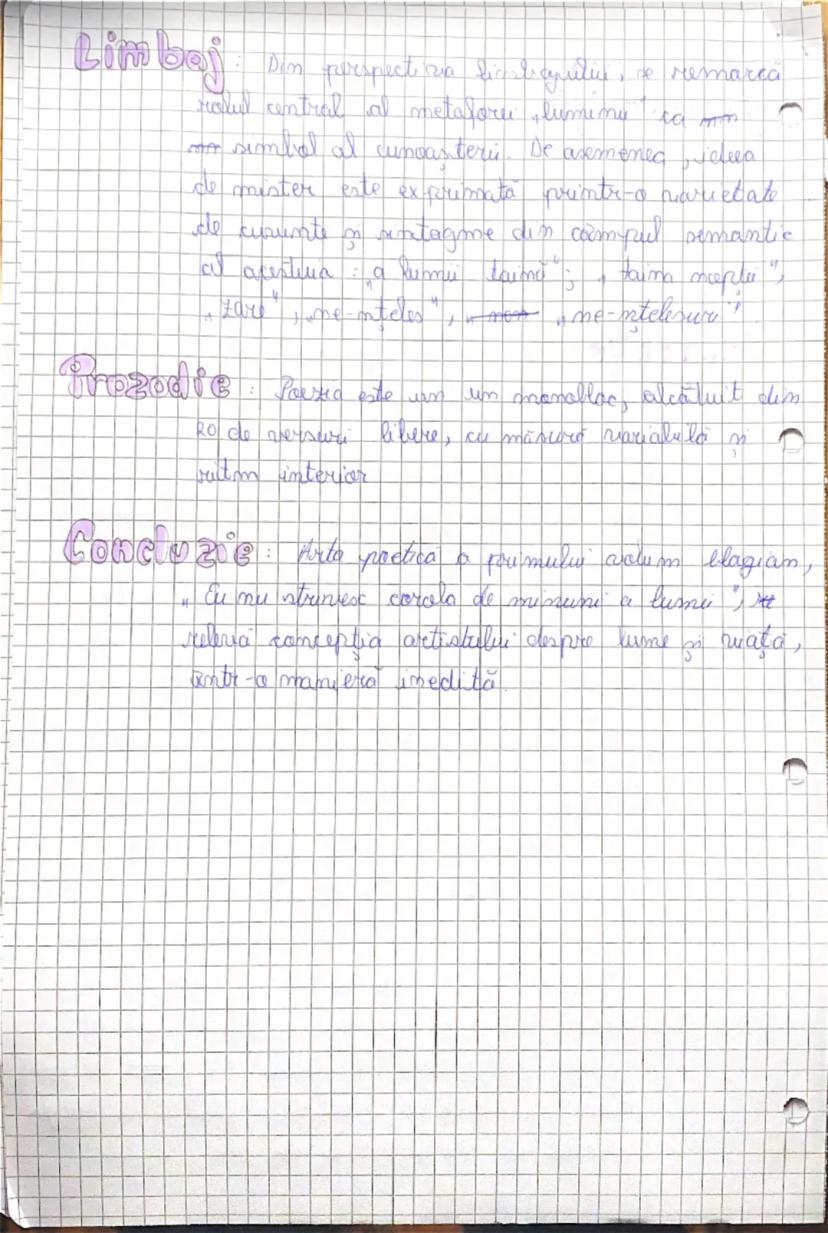 Limbaj: Din perspectiva limbajului, se remarcă
rolul central al metaforei „luminii" ca
simbol al cunoașterii. De asemenea, ideea
de mister este exprimată printr-o varietate
de cuvinte și sintagme din câmpul semantic
al acestuia: „a lumii taină"; „taina nopții",
„zare", „ne-nțeles", „ne-nțelesuri"
Prozodie: Poezia este un un monobloc, alcătuit din
20 de versuri libere, cu măsură variabilă și
ritm interior
Concluzie: Arta poetică a primului volum blagian,
„Eu nu strivesc corola de minuni a lumii",
relevă concepția artistului despre lume și viață,
într-o manieră inedită.